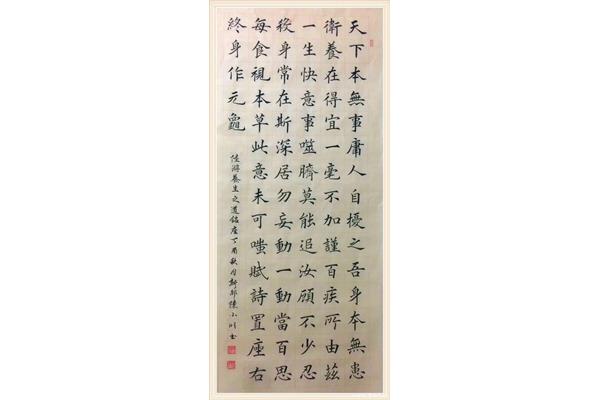 天下本無事庸人自擾之吾身本無患
衛養在得宜一毫不加謹百疾所由茲
一生快意事噬臍莫能追汝顧不少忍
殺身常在斯深居勿妄動一動當百思
每食視本草此意未可嗤賦詩置座右
終身作元龜
陸游養生之道銘座丁酉秋月陳小川書